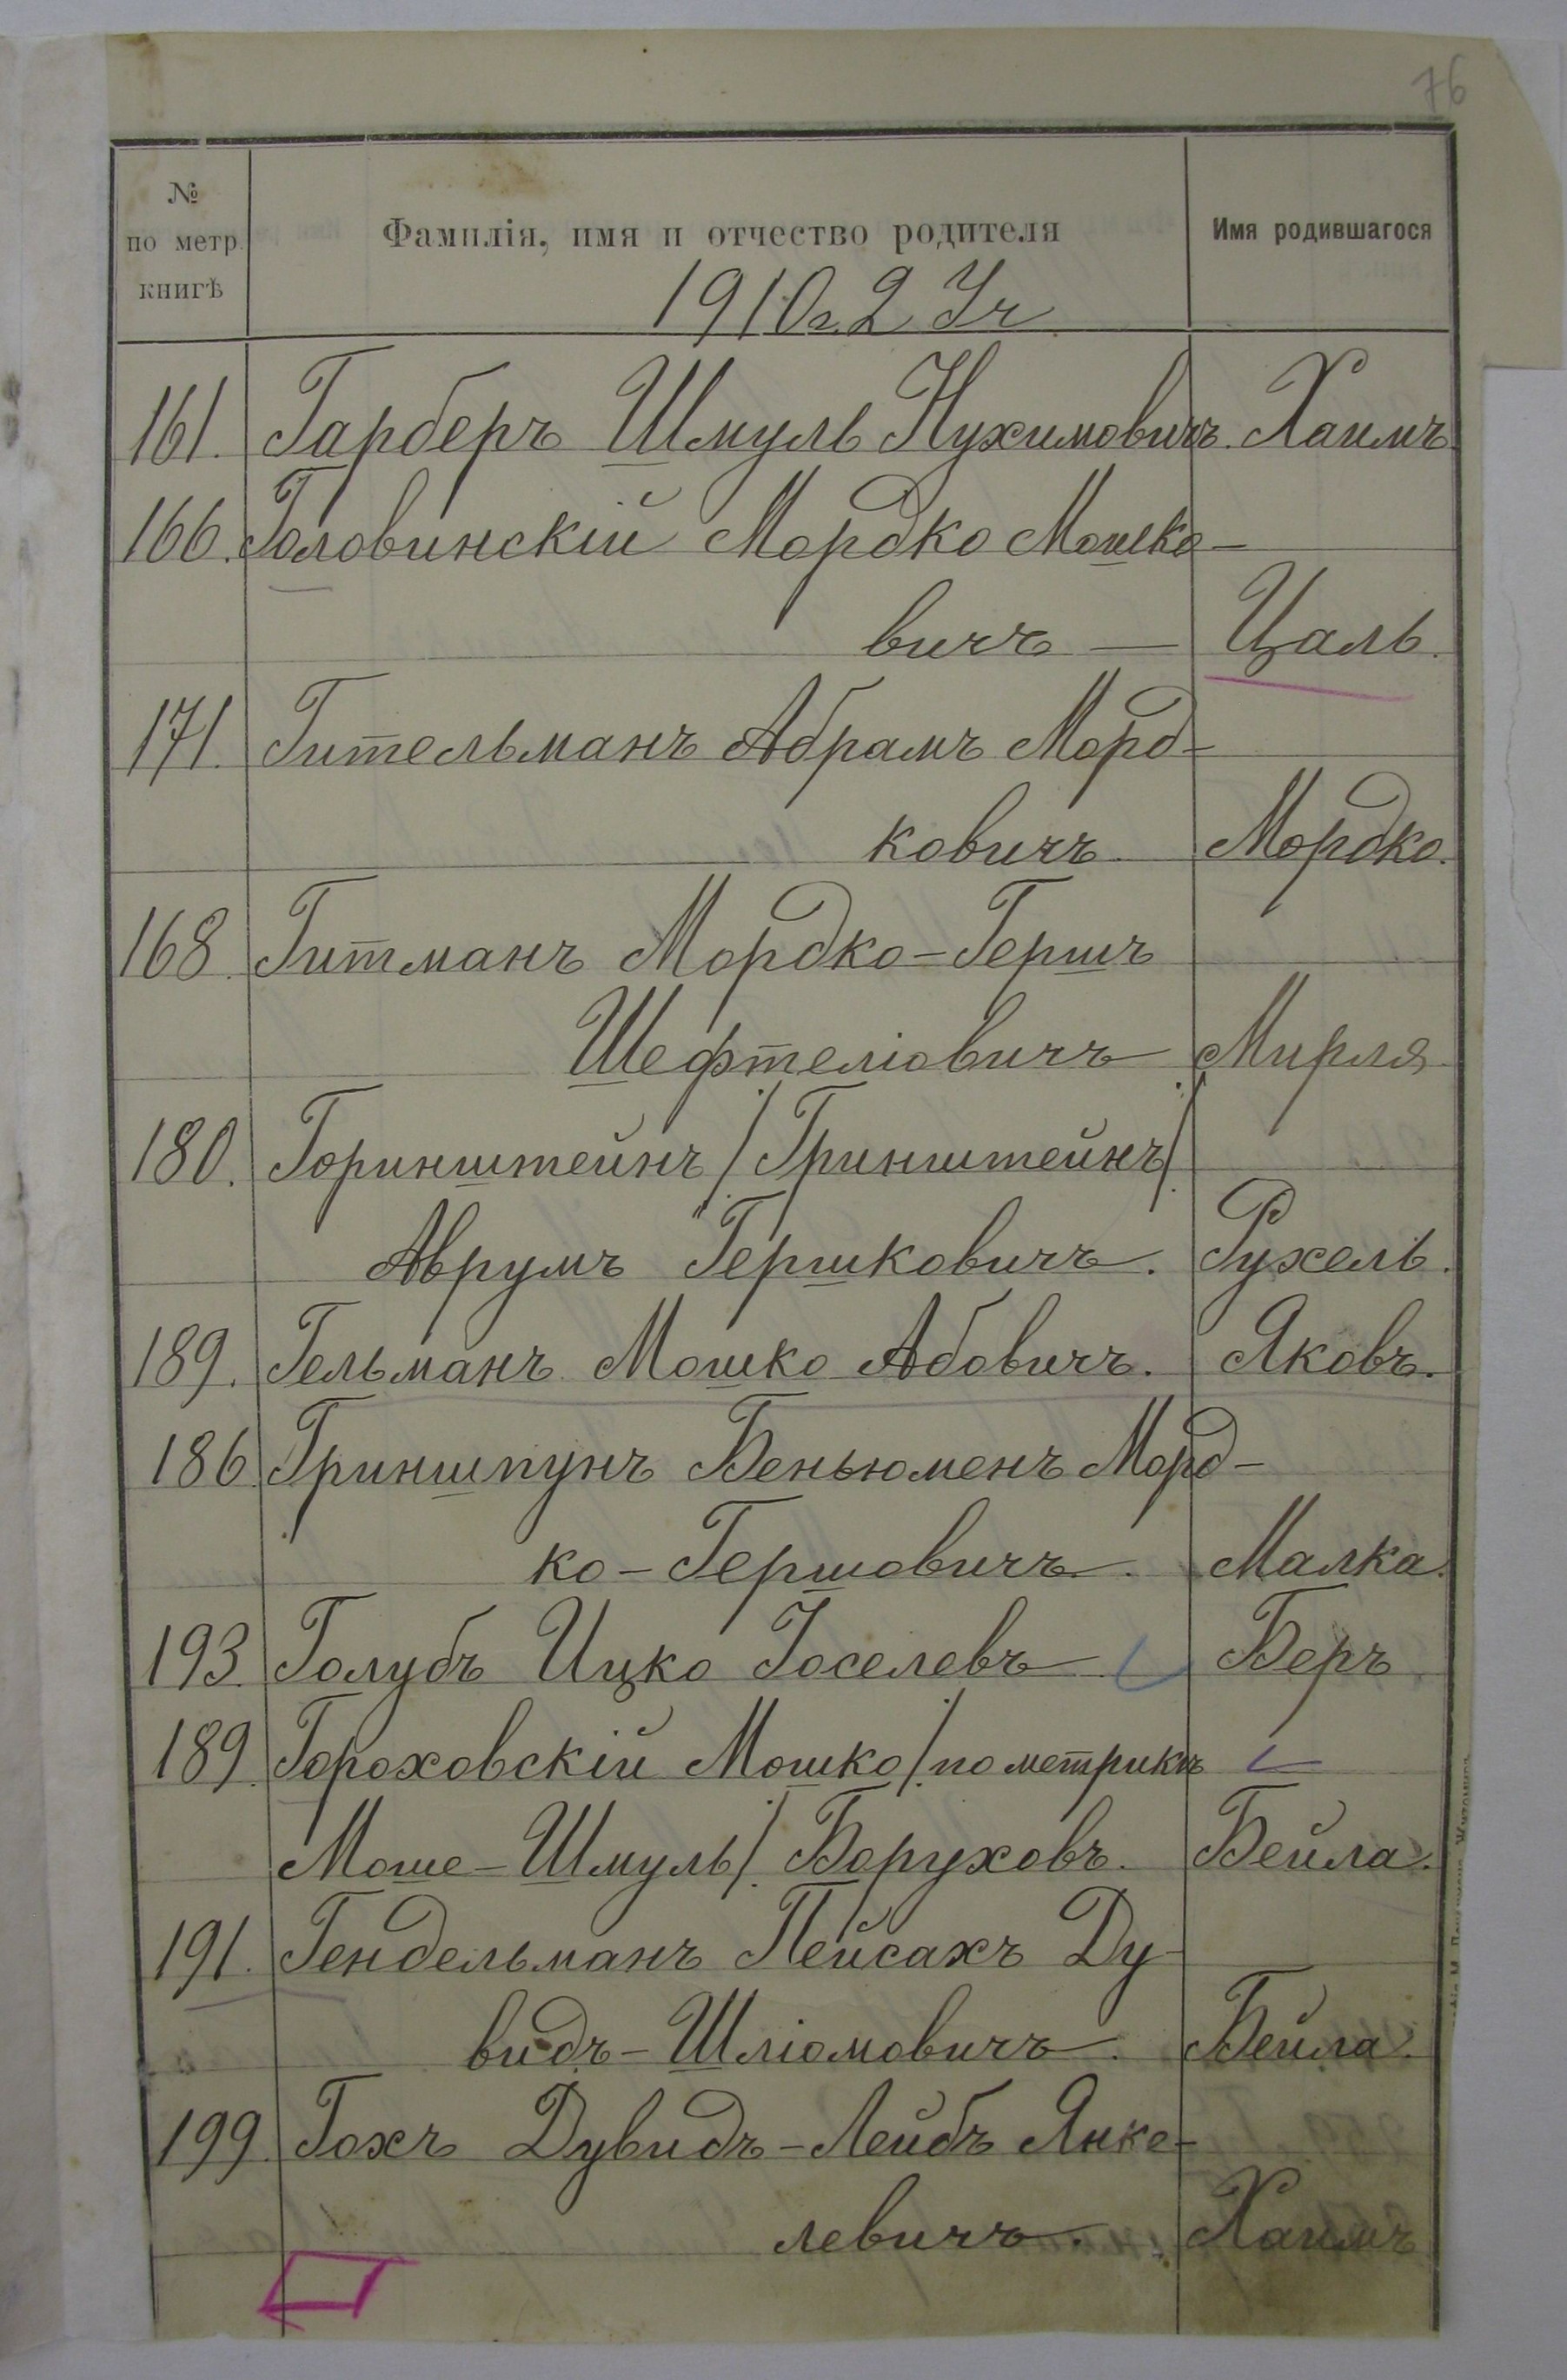 76
№ по метр. книгѣ
Фамилія, имя и отчество родителя
Имя родившагося
1910г. 2 Уч.
161. Гарберъ Шмуль Нухимовичъ. Хаимъ.
166. Головинскій Мордко Мошко-
вичъ — Цаль.
171. Гительманъ Абрамъ Морд-
ковичъ. Мордко.
168. Гитманъ Мордко-Гершъ
Шефтеліовичъ Мирля
180. Горинштейнъ /Гринштейнъ/
Аврумъ Гершковичъ. Рухель.
189. Гельманъ Мошко Абовичъ. Яковъ.
186. Гриншпунъ Беньюменъ Морд-
ко-Гершовичъ. Малка.
193. Голубъ Ицко Іоселевъ Беръ
189. Гороховскій Мошко /по метрикѣ
Моше-Шмуль/ Боруховъ. Бейла.
191. Гендельманъ Пейсахъ Ду-
видъ-Шліомовичъ. Бейла.
199. Гохъ Дувидъ-Лейбъ Янке-
левичъ. Хаимъ